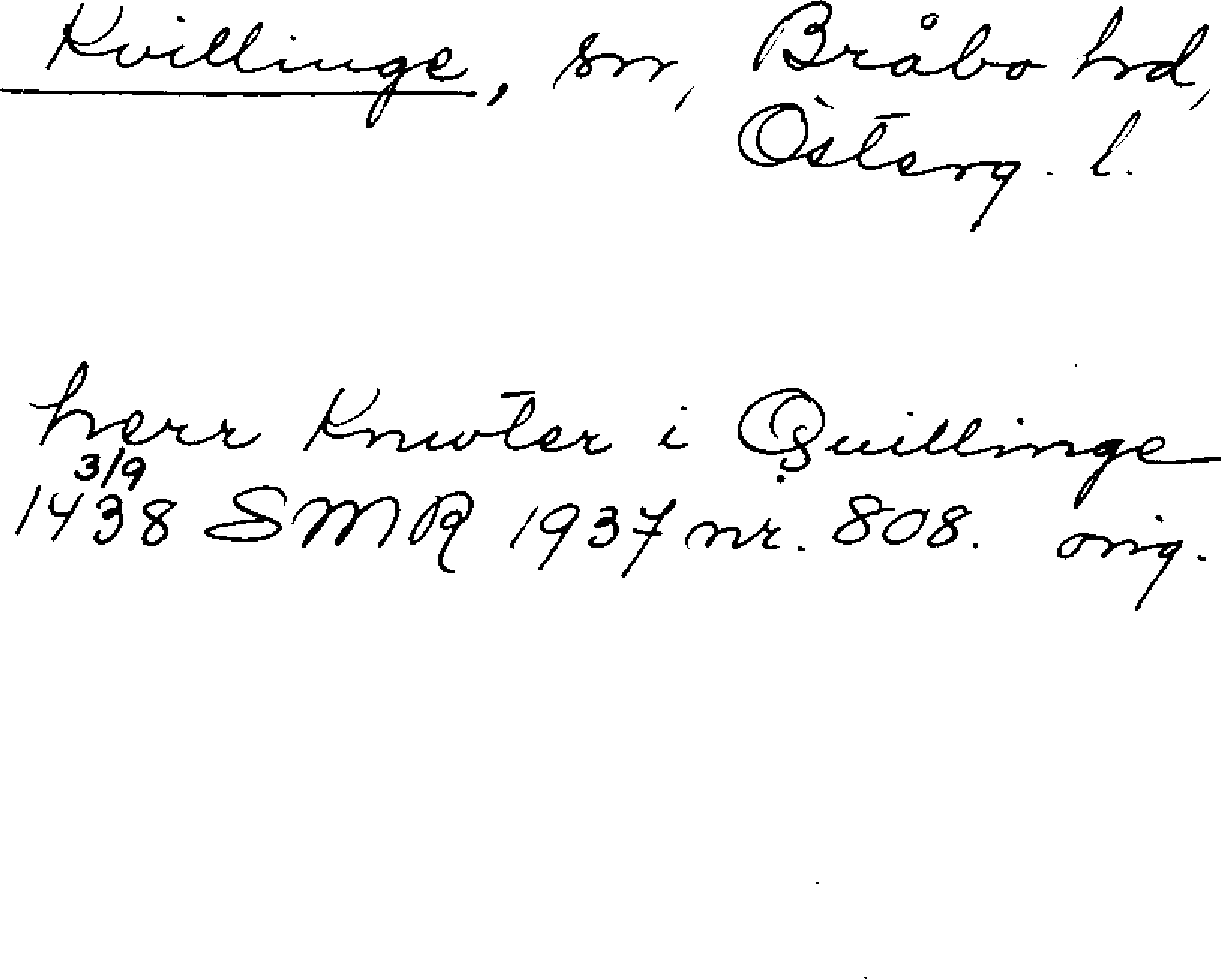 Kvillinge, sn, Bråbo hd,
Österg. l.
herr Knwter i Quillinge
3/9
1438 SMR 1937 nr. 808. orig.